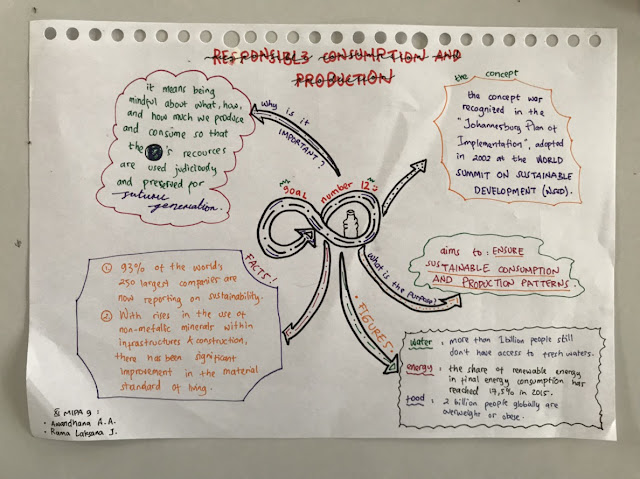 RESPONSIBLE CONSUMPTION AND
PRODUCTION
it means being
mindful about what, how,
and how much we produce
and consume so that
the 's recources
are used judiciously
and preserved for
future
generation.
why is it
IMPORTANT?
the concept
the concept was
recognized in the
"Johannesburg Plan of
Implementation", adopted
in 2002 at the WORLD
SUMMIT ON SUSTAINABLE
DEVELOPMENT (WSSD).
goal number 12
FACTS!
① 93% of the world's
250 largest companies are
now reporting on sustainability.
② With rises in the use of
non-metallic minerals within
infrastructures & construction,
there has been significant
improvement in the material
standard of living.
what is the purpose?
aims to : ENSURE
SUSTAINABLE CONSUMPTION
AND PRODUCTION PATTERNS.
• FIGURES
water : more than 1 billion people still
don't have access to fresh waters.
energy : the share of renewable energy
in final energy consumption has
reached 17,5% in 2015.
food : 2 billion people globally are
overweight or obese.
MIPA 9 :
• Anandhana A.A.
• Rama Laksana J.